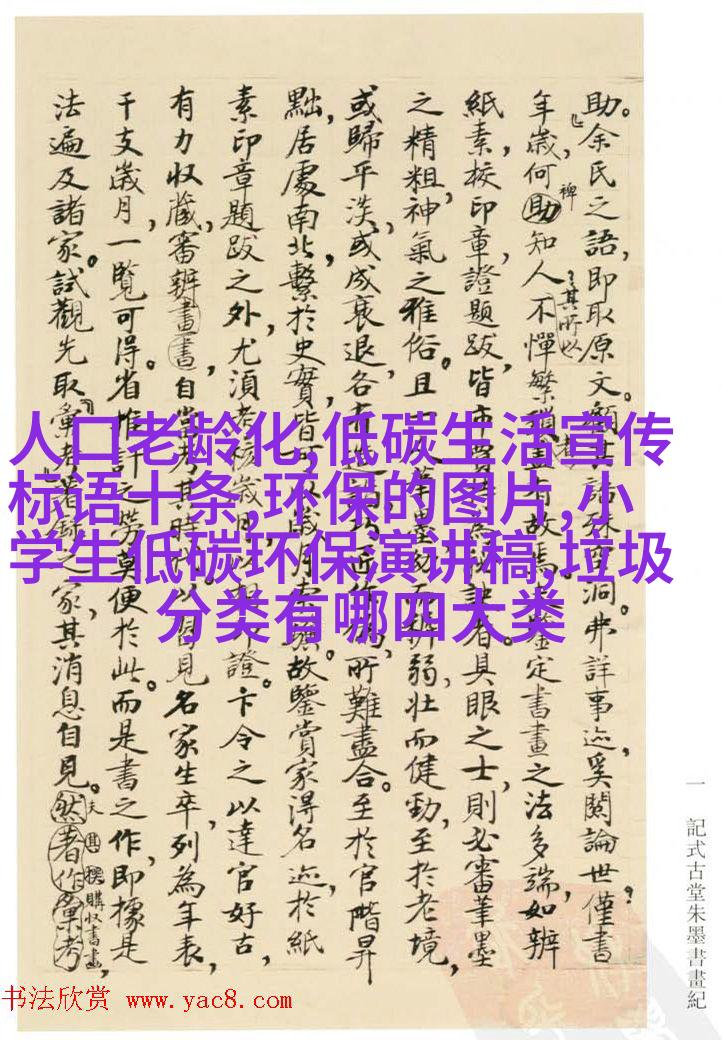 助。余氏之語，即取原文。顧其語殊空洞。弗詳事迹，奚關論世。僅書
年歲，何裨知人。不憚繁瑣，蓋有故焉。夫鑒定書畫之法多端，如辨
紙素，校印章，證題跋，皆
之精粗，神氣之雅俗。且
弱，壯而健勁，至於老境，
或歸平淡，或成衰退，各有
所難盡合。至於官階昇
黜，居處南北，繫於史實，皆可以
故鑒賞家得名迹，於紙
素印章題跋之外，尤須考核歲月，以
證。卞令之以達官好古，
有力收藏，審辨畫書，自當考其時
習見名家生卒，列為年表，
干支歲月，一覽可得。省推計之勞，莫便於此。而是書之作，即據是
法遍及諸家。試觀先取彙考著錄之家，其消息自見。
其撰購收書畫
一 記式古堂朱墨書畫紀
人口老龄化,低碳生活宣传
标语十条,环保的图片,小
学生低碳环保演讲稿,垃圾
分类有哪四大类
书法欣赏 www.yac8.com